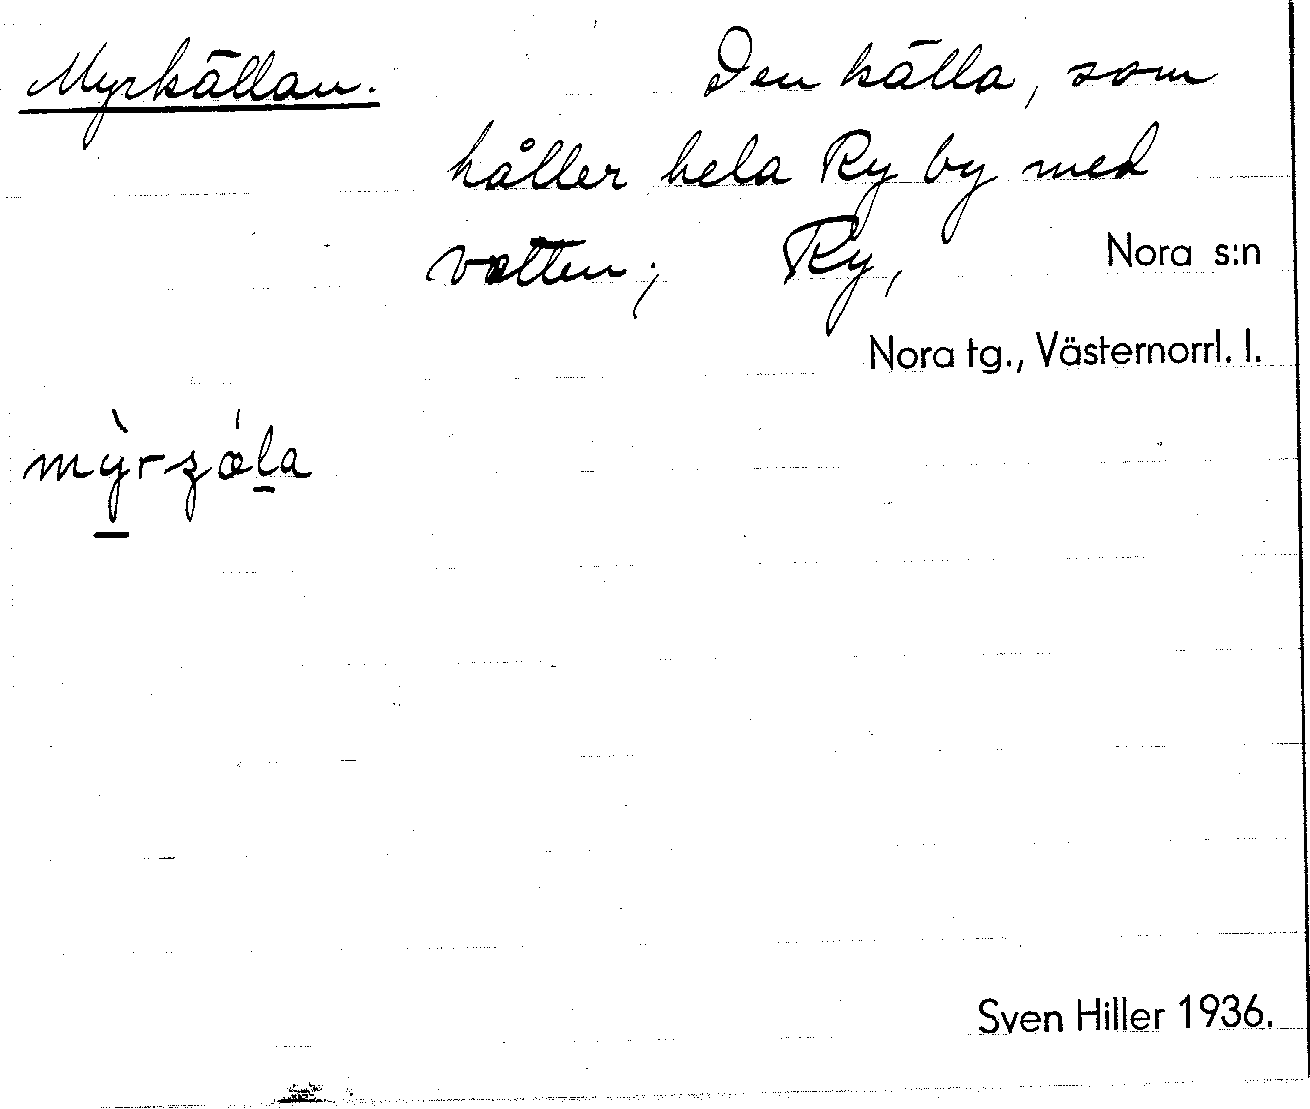 Myrkällan. Den källa, som
håller hela Ry by med
vatten; Ry, Nora s:n
Nora tg., Västernorrl. l.
Sven Hiller 1936.